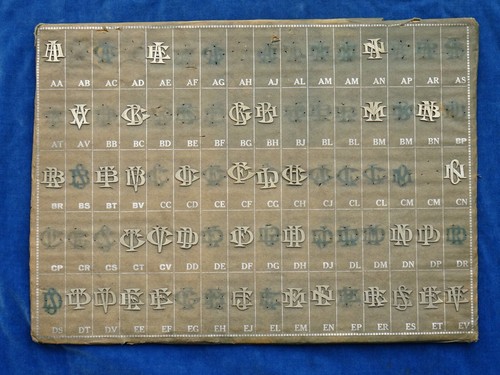 AA AB AC AD AE AF AG AH AJ AL AM AM AN AP AR AS
AT AV BB BC BD BE BF BG BH BJ BL BL BM BM BN BP
BR BS BT BV CC CD CE CF CG CH CJ CL CL CM CM CN
CP CR CS CT CV DD DE DF DG DH DJ DL DM DN DP DR
DS DT DV EE EF EG EH EJ EL EM EN EP ER ES ET EV